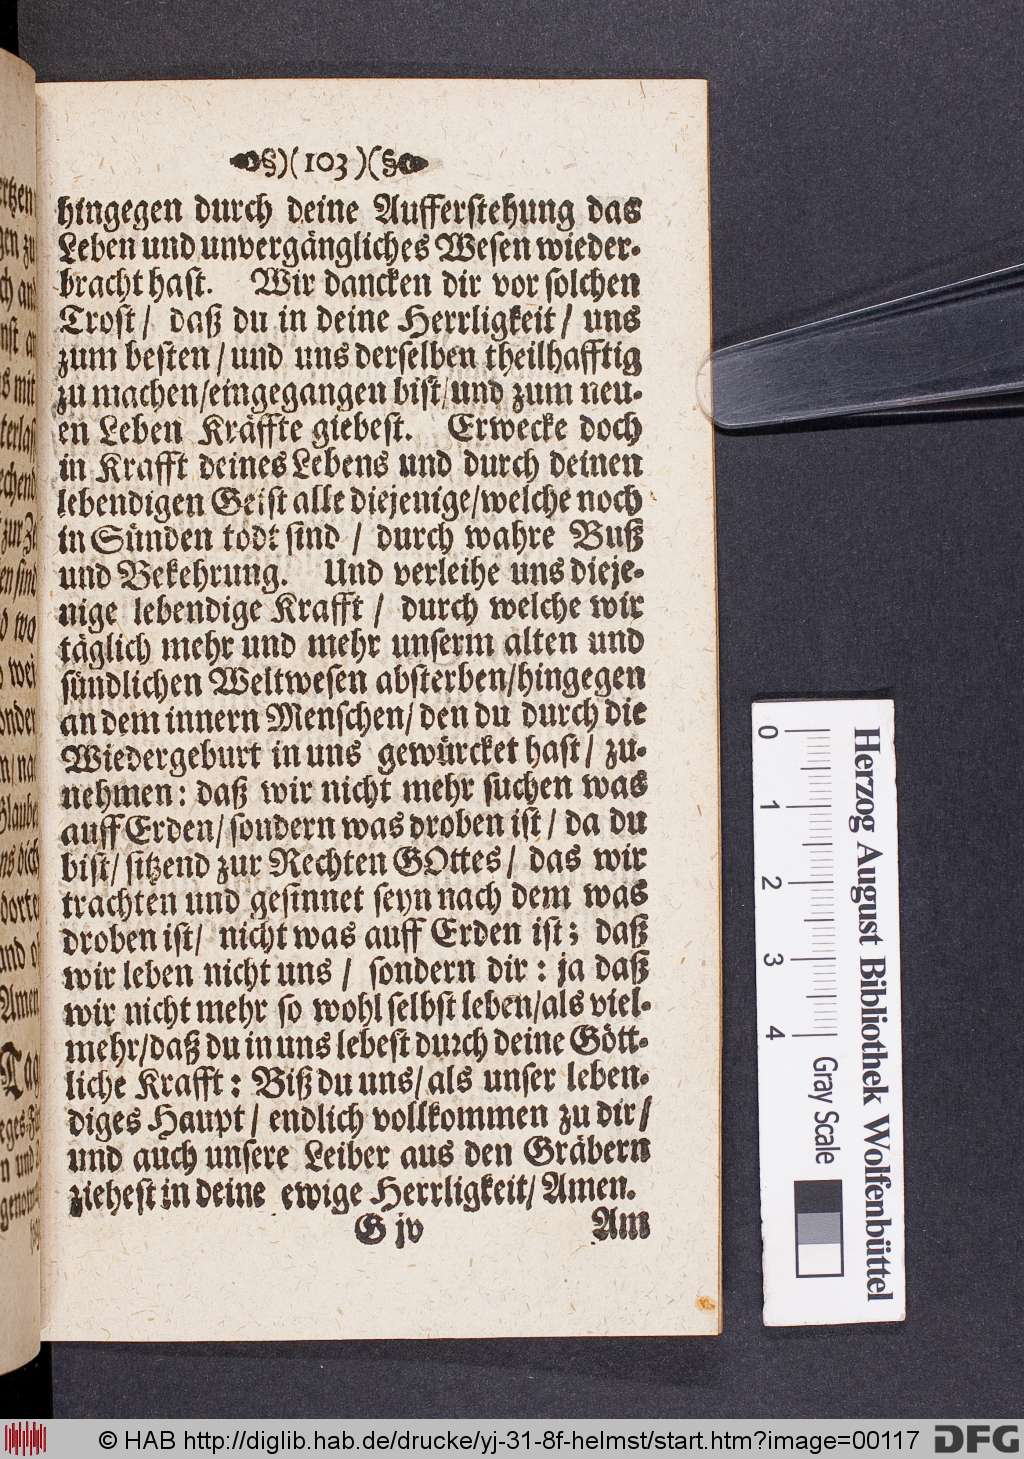 §)(103)(§
hingegen durch deine Aufferstehung das
Leben und unvergängliches Wesen wieder-
bracht hast. Wir dancken dir vor solchen
Trost/ daß du in deine Herrligkeit/ uns
zum besten/ und uns derselben theilhafftig
zu machen/eingegangen bist/und zum neu-
en Leben Kräffte giebest. Erwecke doch
in Krafft deines Lebens und durch deinen
lebendigen Geist alle diejenige/welche noch
in Sünden todt sind / durch wahre Buß
und Bekehrung. Und verleihe uns dieje-
nige lebendige Krafft / durch welche wir
täglich mehr und mehr unserm alten und
sündlichen Weltwesen absterben/hingegen
an dem innern Menschen/ den du durch die
Wiedergeburt in uns gewürcket hast/ zu-
nehmen: daß wir nicht mehr suchen was
auff Erden/ sondern was droben ist/ da du
bist/ sitzend zur Rechten GOttes/ das wir
trachten und gesinnet seyn nach dem was
droben ist/ nicht was auff Erden ist; daß
wir leben nicht uns / sondern dir : ja daß
wir nicht mehr so wohl selbst leben/als viel-
mehr/daß du in uns lebest durch deine Gött-
liche Krafft: Biß du uns/ als unser leben-
diges Haupt/ endlich vollkommen zu dir/
und auch unsere Leiber aus den Gräbern
ziehest in deine ewige Herrligkeit/ Amen.
G jv Am
ertzen
gen zu
ch an
nst an
s mit
terlaß
echend
zur Ze
en sind
wo
wei
onder
n/ na
Glaube
ns dich
dorte
und
Amen
Tag
0 1 2 3 4
Gray Scale
Herzog August Bibliothek Wolfenbüttel
© HAB http://diglib.hab.de/drucke/yj-31-8f-helmst/start.htm?image=00117 DFG